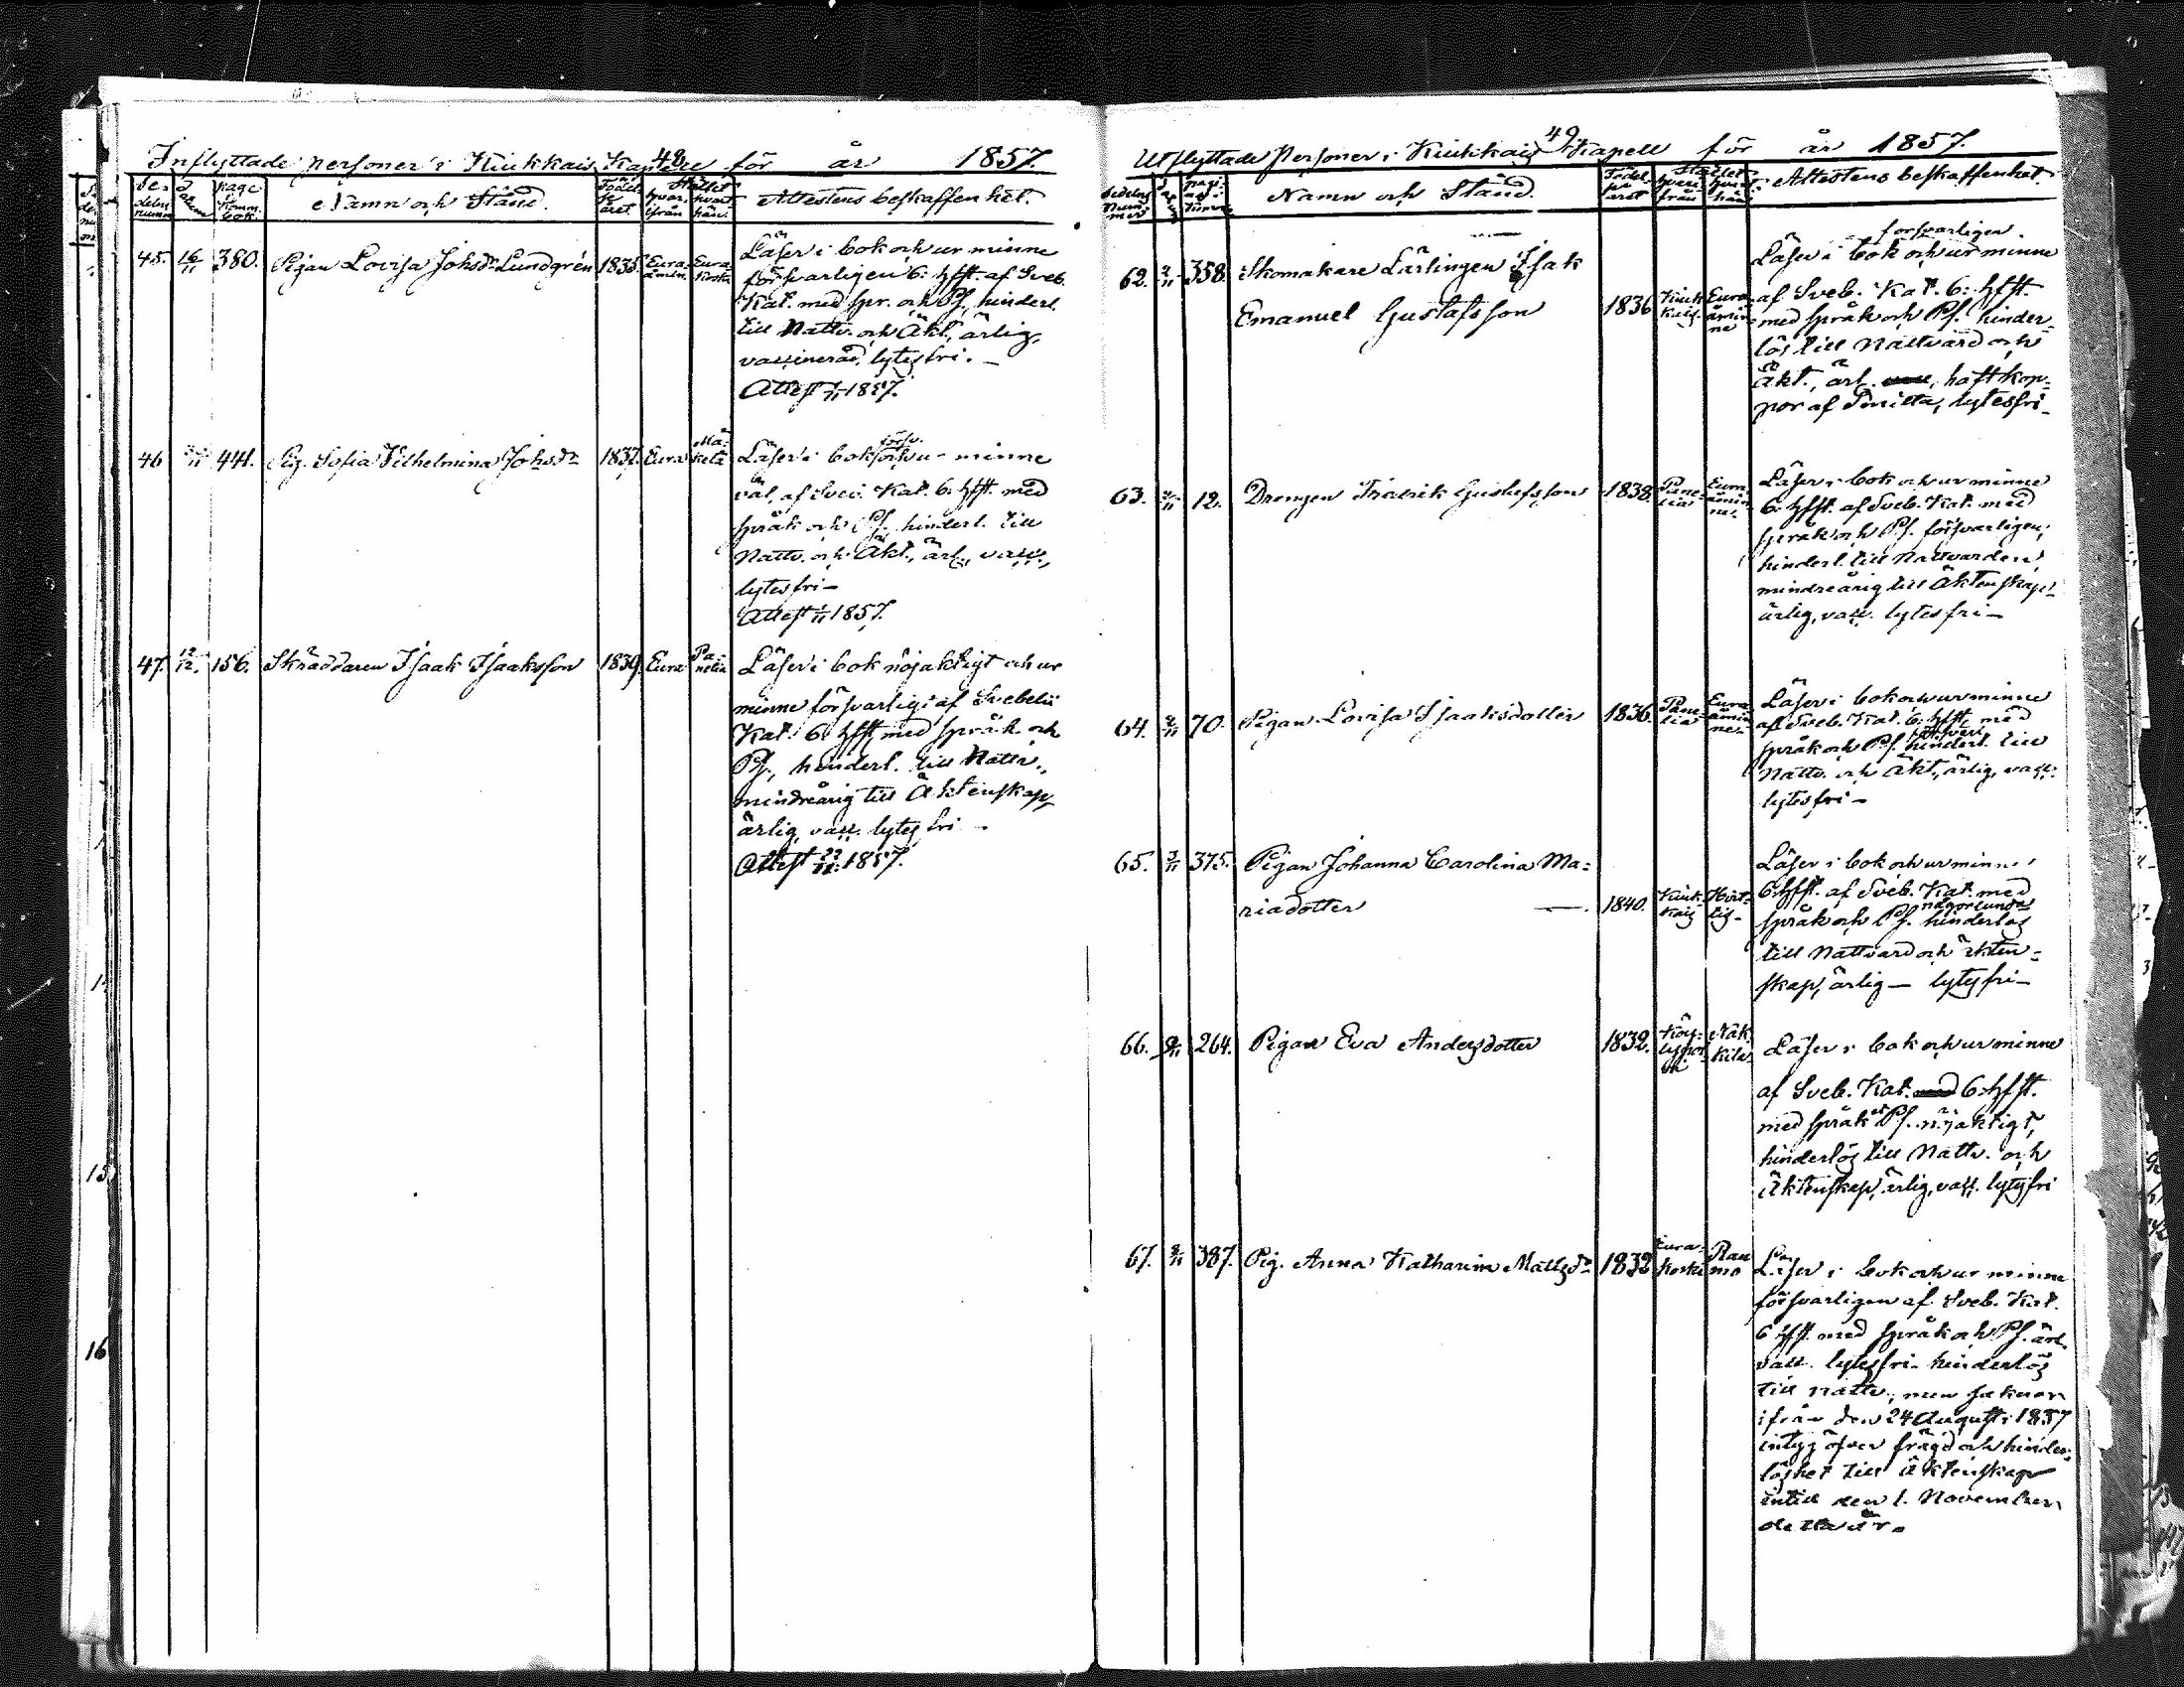 48.
Inflyttade personer i Kiukkais Kapell för år 1857.
Sedelns nummer
Datum
Pagi i Komm. bok
Namn och Stånd.
Födelse året
Stället
hvarifrån
hvart hän
Attestens beskaffenhet.
45. 16/11 380. Pigan Lovisa Johsdr Lundgrén 1835. Euraåmin. Eura Kirsta
Läser i bok och ur minne
försvarligen 6. hfft. af Sveb.
Kat. med spr. och Ps. hinderl.
till Nattv. och Äkt., ärlig,
vaccinerad, lytesfri. –
Attest 1857.
46 441. Pig. Sofia Vilhelmina Johsdr 1837. Eura Mäketä
försv.
Läser i bok och ur minne
väl, af Sveb. Kat. 6. hfft. med
språk och Ps. hinderl. till
Nattv. och Äkt., ärl., vacc.,
lytesfri –
Attest 1857.
47. 12/12. 156. Skräddaren Isaak Isaaksson 1839. Eura Panelia
Läser i bok nöjaktigt och ur
minne försvarligt af Svebelii
Kat. 6 hfft. med språk och
Ps., hinderl. till Nattv.,
mindreårig till Äktenskap,
ärlig, vacc. lytesfri –
Attest 1857.
49
Utflyttade Personer i Kiukkais Kapell för år 1857.
Sedelns Nummer
Namn och Stånd.
Födelse året
Stället
hvarifrån
hvart hän
Attestens beskaffenhet.
försvarligen.
62. 2/11 358. Skomakare Lärlingen Isak
Emanuel Gustafsson 1836 Kiukkais Euraåminne
Läser i bok och ur minne
af Sveb. Kat. 6. hfft.
med språk och Ps. hinder-
lös till Nattvard och
Äkt., ärl. haft kop-
por af Smitta, lytesfri –
63. 12. Drengen Fredrik Gustafsson 1838. Panelia Euraåminne
Läser i bok och ur minne
6. hfft. af Sveb. Kat. med
språk och Ps. försvarligen,
hinderl. till Nattvarden,
mindreårig till Äktenskap
ärlig, vacc. lytesfri –
64. 2/11 70. Pigan Lovisa Isaaksdotter 1836. Panelia Euraåminne
Läser i bok och ur minne
af Sveb. Kat. 6. hfft. med
språk och Ps. hinderl. till
Nattv. och Äkt., ärlig, vacc.
lytesfri –
65. 3/11 375. Pigan Johanna Carolina Ma-
riadotter — 1840. Kiukkais Hvittis –
Läser i bok och ur minne
6. hfft. af Sveb. Kat. med
någorlunda
språk och Ps. hinderlös
till Nattvard och äkten-
skap, ärlig – lytesfri –
66. 264. Pigan Eva Andersdotter 1832. Nakkila
Läser i bok och ur minne
af Sveb. Kat. 6. hfft.
med språk et Ps. nöjaktigt,
hinderlös till Nattv. och
Äktenskap, ärlig, vacc. lytesfri
67. 387. Pig. Anna Katharina Mattsdr 1832 Eurakoski Raumo
Läser i bok och ur minne
försvarligen af Sveb. Kat.
6 hfft. med språk och Ps. ärl.
vacc. lytesfri – hinderlös
till nattv., men saknar
ifrån den 24 Augusti 1857
intyg öfver frägd och hinder-
löshet till äktenskap
intill den 1. November
detta år.